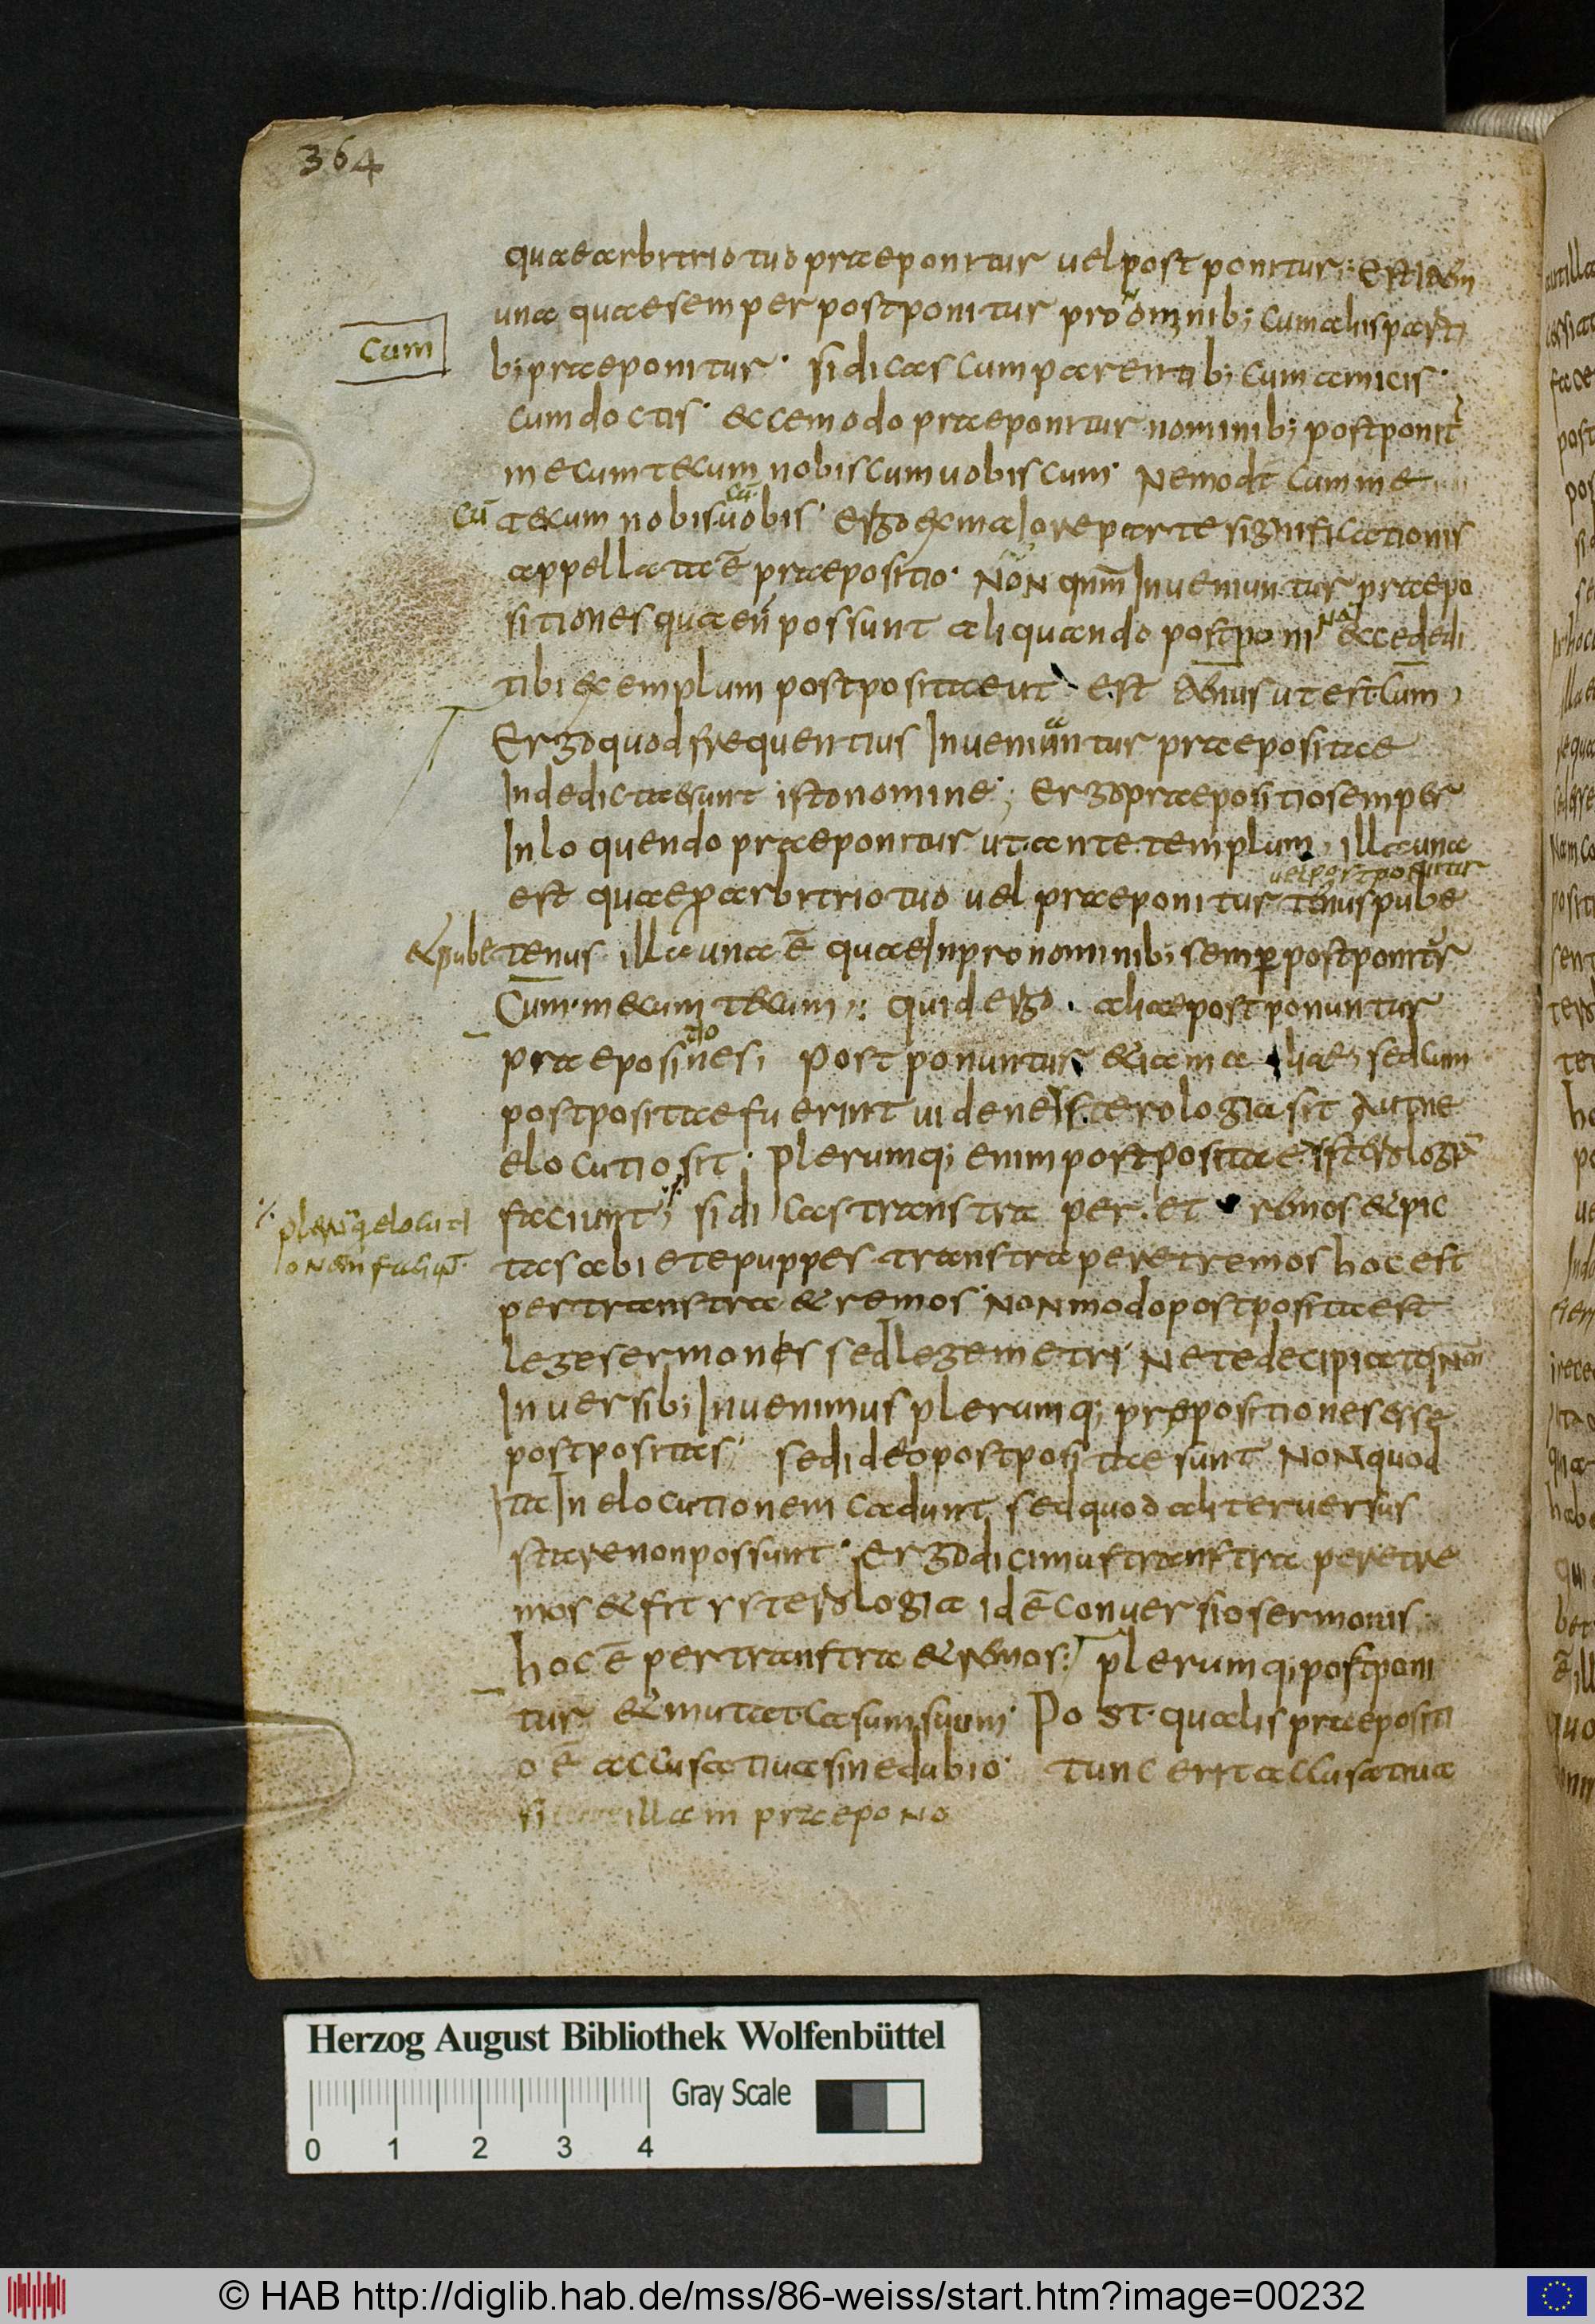 364
quae arbitrio tuo praeponitur uel postponitur; Est idem
una quae semper postponitur pronominib; cum aliis parti
Cum
b; praeponitur · si dicas cum parentib; cum amicis ·
cum doctis · ecce modo praeponitur nominib; postponit
mecum tecum nobiscum uobiscum · Nemo dt cum me
cū a tecum nobis cū uobis · ergo ex maiore parte significationis
appellata ē praepositio · NoN qnm Inueniuntur praepo
sitiones quae n possunt aliquando postponi Na ecce dedi
tibi exemplum postpositae ut est tenus ut est cum
Ergo quod frequentius Inueniuntur praepositae
Inde dictae sunt isto nomine; Ergo praepositio semper
In loquendo praeponitur ut ante templum, illa una
uel postponitur
est quae p arbitrio tuo uel praeponitur tenus pube
& pube tenus illa una ē quae In pronominib; semp postponitur
Cum · mecum tecum; quid ergo · aliae postponuntur
tio
praeposines; postponuntur &iam aliae, sed cum
postpositae fuerint uide ne isterologia sit Aut ne
elocutio sit; plerumq; enim postpositae isterologia
faciunt; si dicas transtra per · et remos & pic
plerūq elocuti
onem faciunt
tas abiete puppes · transtra per et remos hoc est
per transtra & remos · NoN modo postposita est
lege sermonis sed lege metri · Ne te decipiat q Nam
In uersib; Inuenimus plerumq; prepositiones esse
postpositas, sed ideo postpositae sunt NoN quod
ita In elocutionem cadunt, sed quod aliter uersus
stare non possunt · Ergo dicimus transtra per et re
mos & fit ysterologia id ē conuersio sermonis
hoc ē per transtra & remos; plerumq; postponi
tur & mutat casum suum · Post · qualis praepositi
o ē accusatiua sine dubio · tunc erit accusatiua
si illam praepoNo
Herzog August Bibliothek Wolfenbüttel
Gray Scale
0 1 2 3 4
© HAB http://diglib.hab.de/mss/86-weiss/start.htm?image=00232